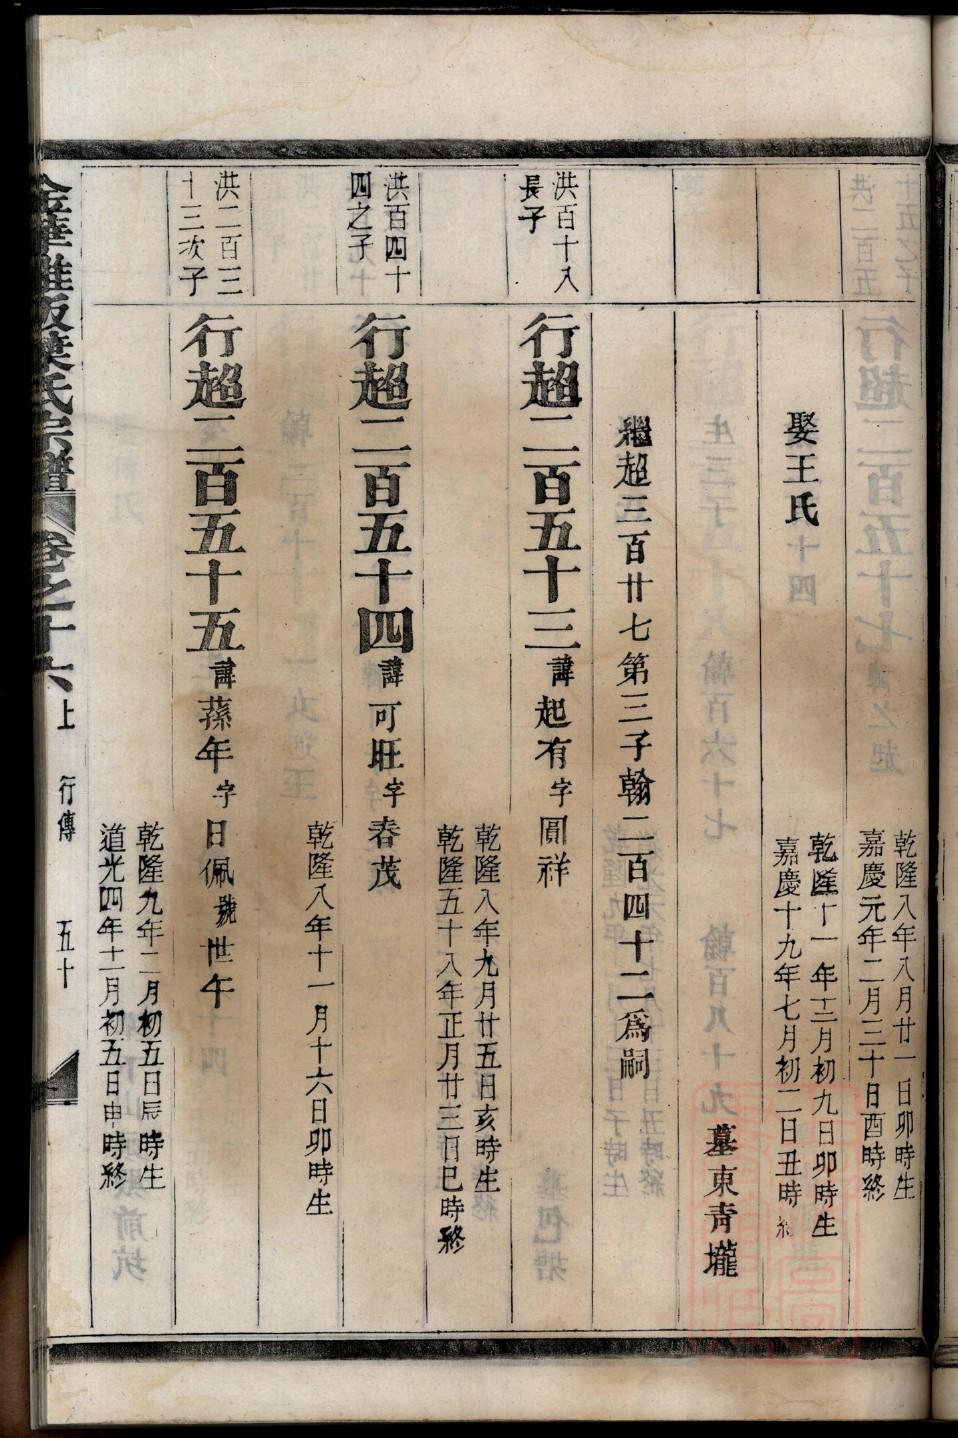 乾隆八年八月廿一日卯時生
嘉慶元年二月三十日酉時終
娶王氏
乾隆十一年三月初九日卯時生
嘉慶十九年七月初二日丑時終
墓東青壠
繼超三百廿七第三子翰二百四十二為嗣
洪百十八
長子
行超二百五十三諱起有字圓祥
乾隆八年九月廿五日亥時生
乾隆五十八年正月廿三日巳時終
洪百四十
四之子
行超二百五十四諱可旺字春茂
乾隆八年十一月十六日卯時生
洪二百三
十三次子
行超二百五十五諱蓀年字日佩號世午
乾隆九年二月初五日辰時生
道光四年十一月初五日申時終
葉氏宗譜 卷之十六上 行傳 五十